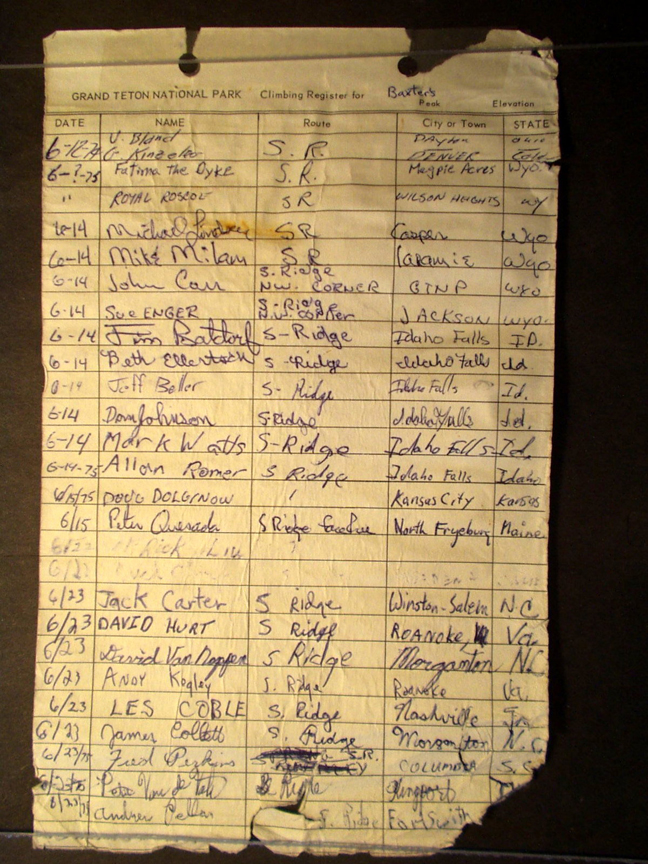 GRAND TETON NATIONAL PARK Climbing Register for Baxter's Peak Elevation
DATE NAME Route City or Town STATE
U. Bland Dayton
6-12-74 G. S.R. DENVER Colo
6-?-75 Fatima the Dyke S.R. Magpie Acres Wyo.
" ROYAL ROSCOE SR WILSON HEIGHTS WY
6-14 Michael Lindsey SR Casper Wyo
6-14 Mike Milam SR Laramie Wyo
6-14 John Carr S. Ridge N.W. CORNER GTNP WYO
6-14 Sue ENGER S-Ridge N.W. CORNER JACKSON WYO.
6-14 Jim Batdorf S-Ridge Idaho Falls ID.
6-14 Beth S-Ridge Idaho Falls Id
6-14 Jeff Beller S-Ridge Idaho Falls Id.
6-14 Don Johnson S-Ridge Idaho Falls Id.
6-14 Mark Watts S-Ridge Idaho Falls Id.
6-14-75 Allan Romer S Ridge Idaho Falls Idaho
6/15/75 DOUG DOLGINOW Kansas City Kansas
6/15 Peter Quesada S Ridge North Fryeburg Maine
6/23 Jack Carter S Ridge Winston-Salem N.C.
6/23 DAVID HURT S Ridge ROANOKE, Va.
6/23 David Van S Ridge Morganton NC
6/23 ANDY Kegley S. Ridge Roanoke Va.
6/23 LES COBLE S. Ridge Nashville
6/23 James Collett S. Ridge Morganton N.C.
6/23/75 Fred Perkins S.R. COLUMBIA S.C.
Pete S. Ridge
Andrew S. Ridge Fort Smith